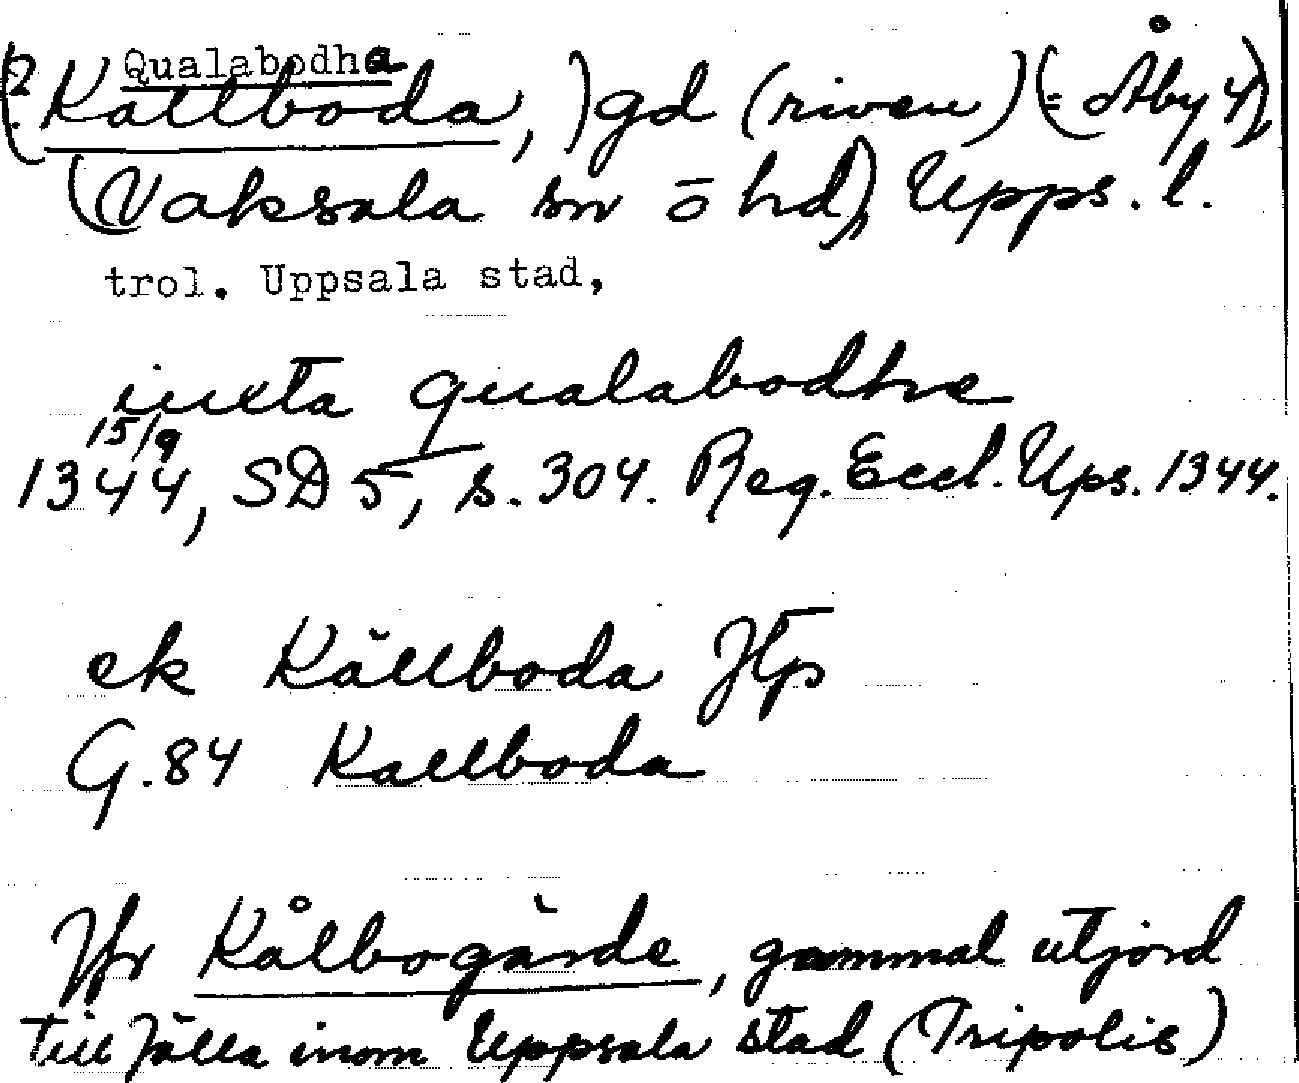 Qualabodha
(? Källboda,) gd (riven) (= Åby 4)
(Vaksala sn ö hd), Upps. l.
trol. Uppsala stad,
iuxta qualabodhe
15/9
1344, SD 5, s. 304. Reg. Eccl. Ups. 1344.
ek Källboda Jtp
G. 84 Kallboda
Jfr Kålbogärde, gammal utjord
till Jälla inom Uppsala stad (Tripolis)